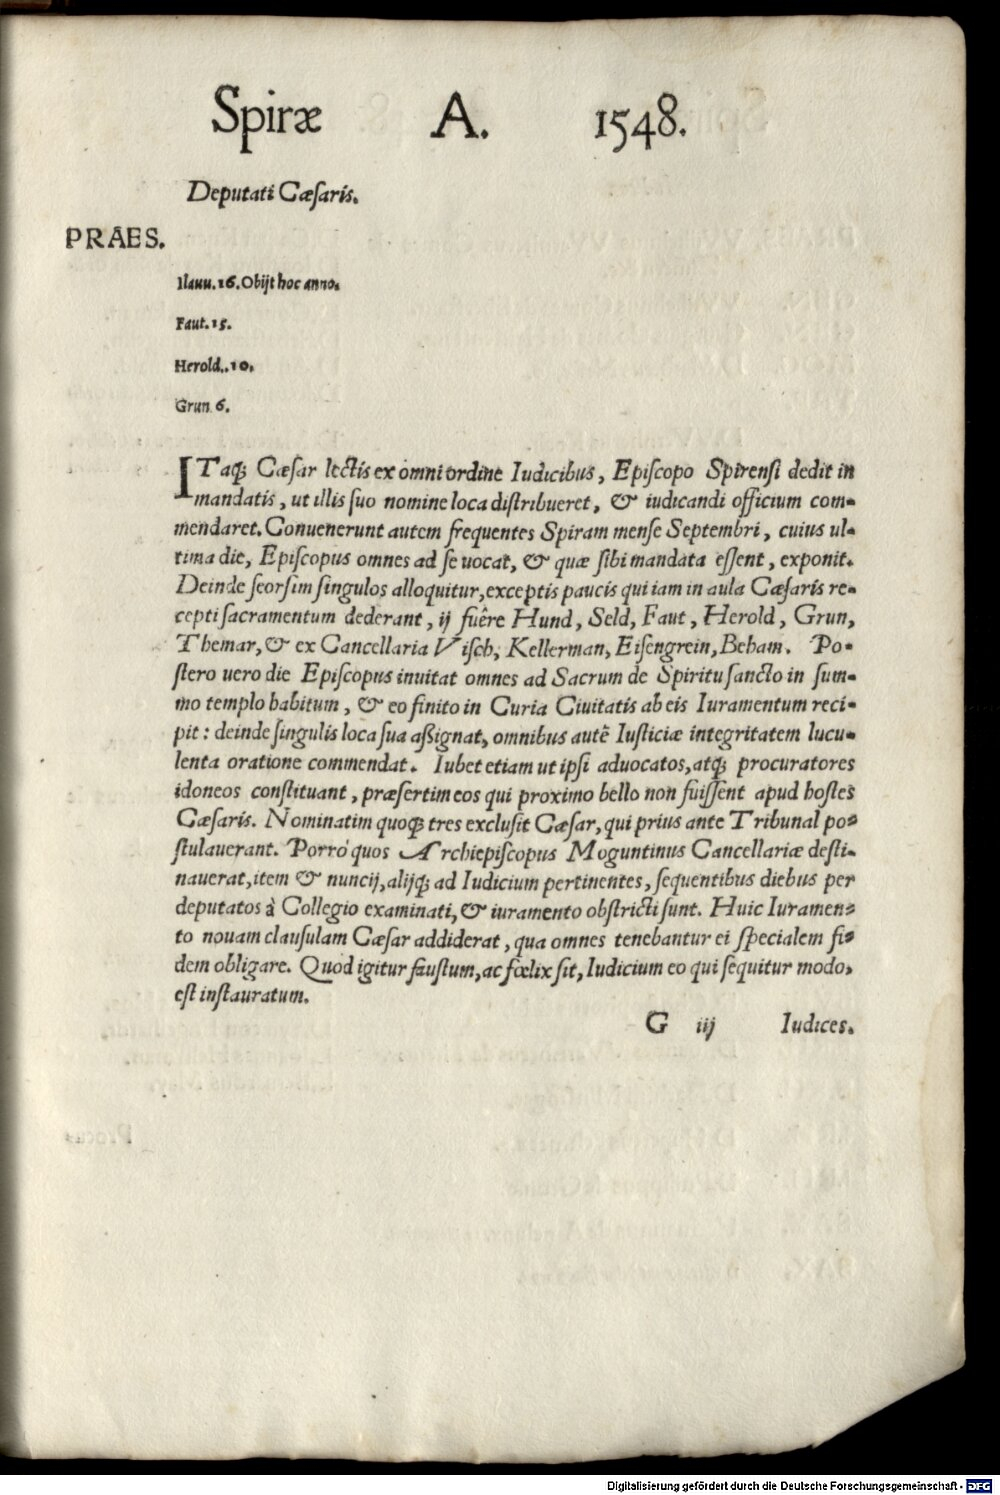 Spiræ A. 1548.
Deputati Cæsaris.
PRAES.
Ilauu. 16. Obijt hoc anno.
Faut. 15.
Herold.. 10.
Grun 6.
ITaq; Cæsar lectis ex omni ordine Iudicibus, Episcopo Spirensi dedit in
mandatis, ut illis suo nomine loca distribueret, & iudicandi officium com-
mendaret. Conuenerunt autem frequentes Spiram mense Septembri, cuius ul-
tima die, Episcopus omnes ad se uocat, & quæ sibi mandata essent, exponit.
Deinde seorsim singulos alloquitur, exceptis paucis qui iam in aula Cæsaris re-
cepti sacramentum dederant, ij fuêre Hund, Seld, Faut, Herold, Grun,
Themar, & ex Cancellaria Visch, Kellerman, Eisengrein, Beham. Po-
stero uero die Episcopus inuitat omnes ad Sacrum de Spiritu sancto in sum-
mo templo habitum, & eo finito in Curia Ciuitatis ab eis Iuramentum reci-
pit: deinde singulis loca sua aßignat, omnibus autē Iusticiæ integritatem lucu-
lenta oratione commendat. Iubet etiam ut ipsi aduocatos, atq; procuratores
idoneos constituant, præsertim eos qui proximo bello non fuissent apud hostes
Cæsaris. Nominatim quoq; tres exclusit Cæsar, qui prius ante Tribunal po-
stulauerant. Porrò quos Archiepiscopus Moguntinus Cancellariæ desti-
nauerat, item & nuncij, alijq; ad Iudicium pertinentes, sequentibus diebus per
deputatos à Collegio examinati, & iuramento obstricti sunt. Huic Iuramen-
to nouam clausulam Cæsar addiderat, qua omnes tenebantur ei specialem fi-
dem obligare. Quod igitur faustum, ac fœlix sit, Iudicium eo qui sequitur modo,
est instauratum.
G iij Iudices.
Digitalisierung gefördert durch die Deutsche Forschungsgemeinschaft - DFG